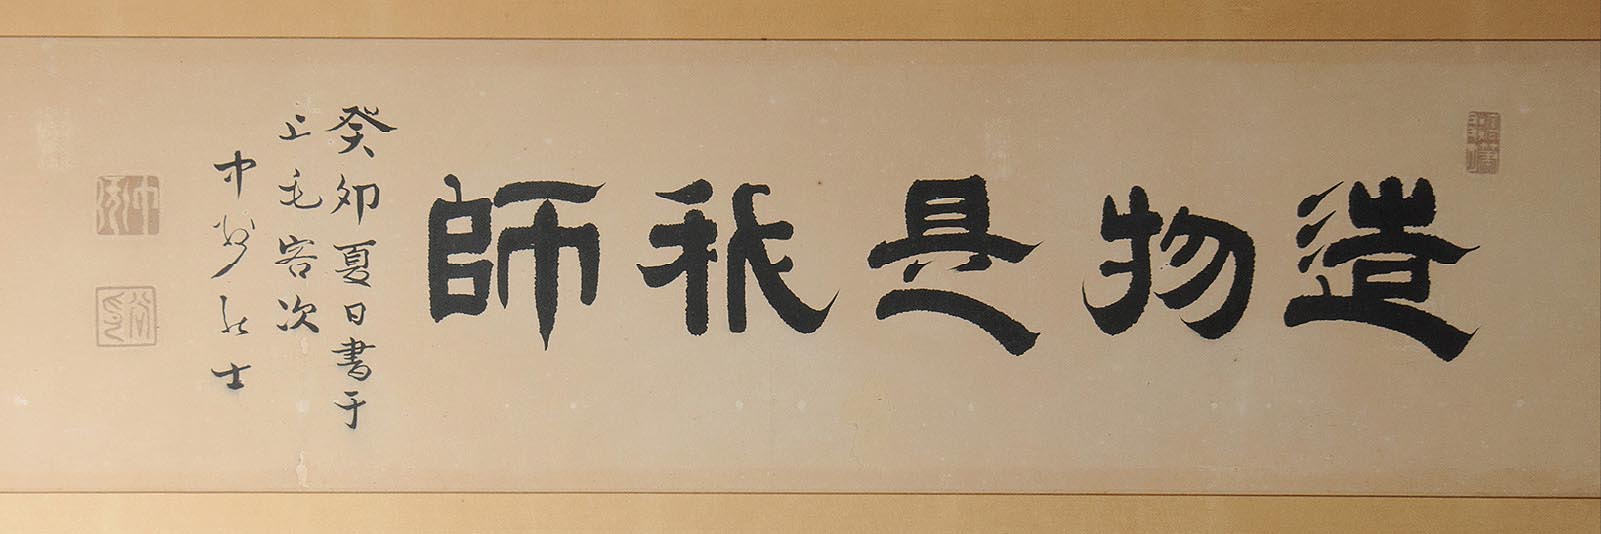 造物是我師
癸卯夏日書于
上毛客次
中州居士